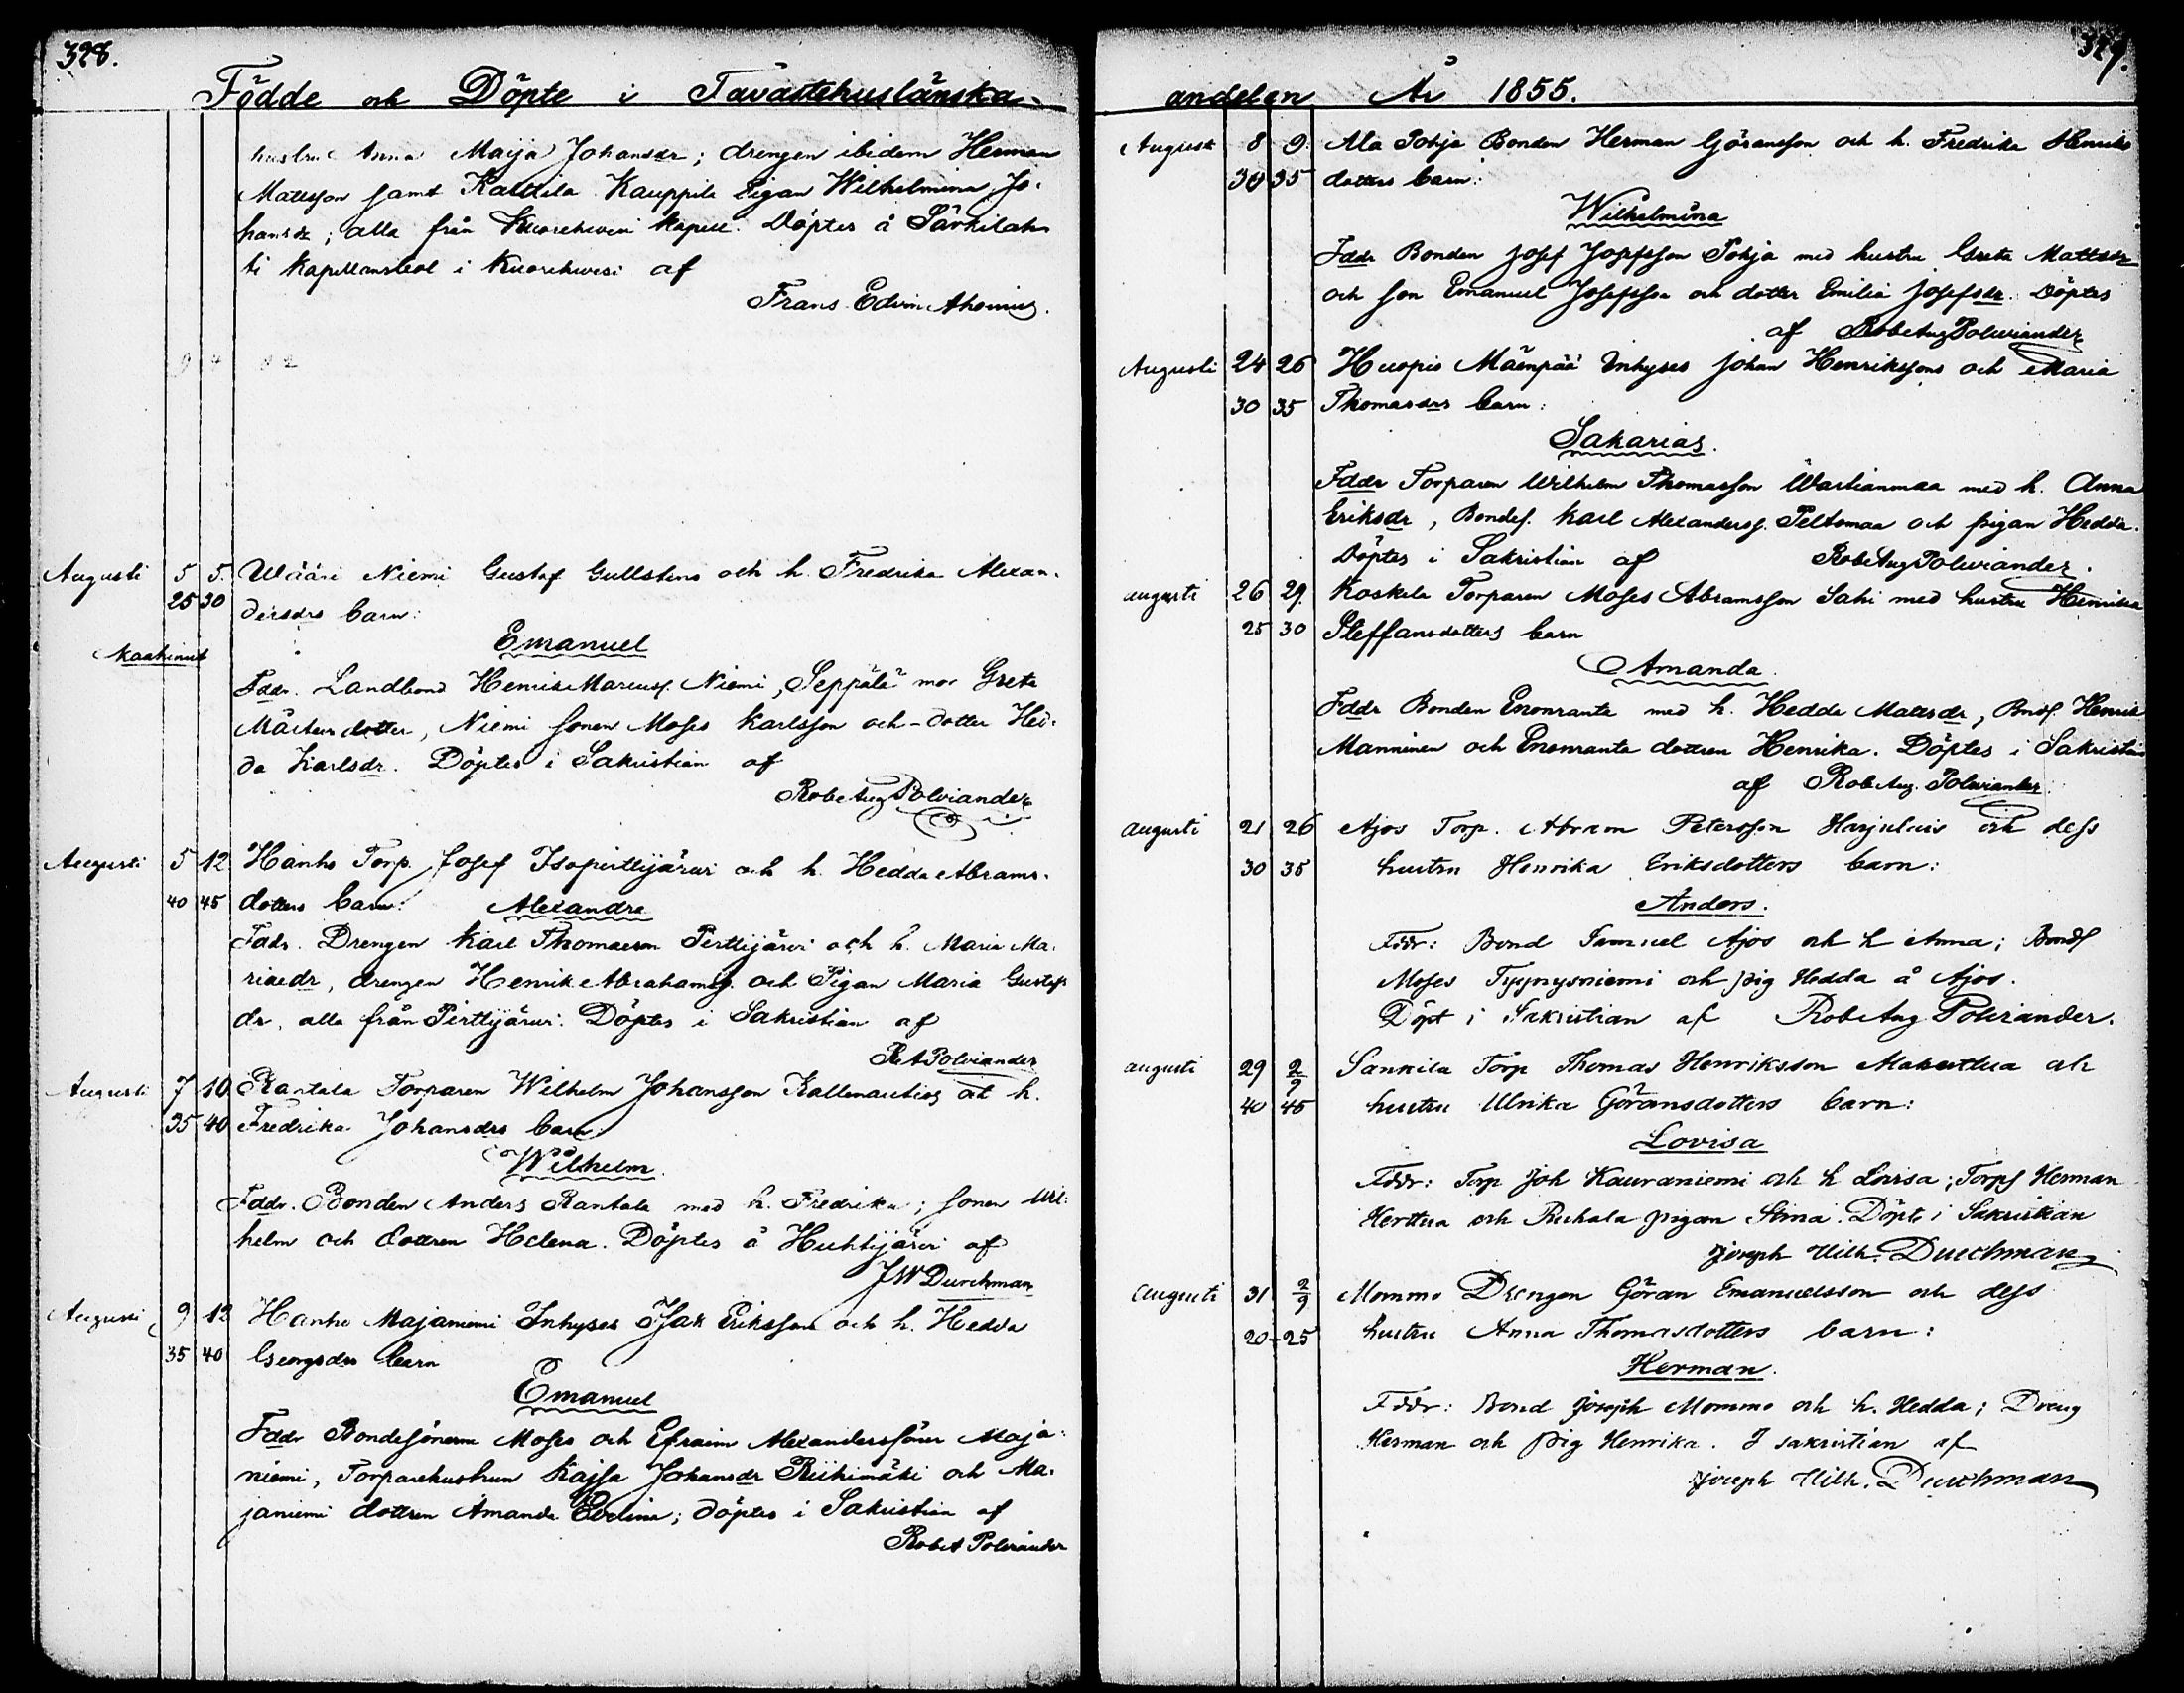 328.
Födde och Döpte i Tavastehuslänska-
hustru Anna Maija Johansdr; drengen ibidem Herman
Mattsson samt Kauppila Pigan Wilhelmina Jo-
hansdr; alla från Kuorehvesi Kapell. Döptes å Särkilah-
ti Kapellansbol i Kuorehvesi af
Frans Edvin Ahonius.
Augusti 5 5. Wääri Niemi Gustaf Gullstens och h. Fredrika Alexan-
25 30 dersdrs barn:
Emanuel
Fddr. Landbond Henrik Marcusf. Niemi, Seppälä mor Greta
Mårtensdotter, Niemi sonen Moses Karlsson och - dotter Hed-
da Karlsdr. Döptes i Sakristian af
Rob Aug Polviander
Augusti 5 12 Hanho Torp. Josef Isopirttijärvi och h. Hedda Abrams-
40 45 dotters barn: Alexandra
Fddr. Drengen Karl Thomasson Pirttijärvi och h. Maria Ma-
riaedr, drengen Henrik Abrahamsf. och Pigan Maria Gustafs
dr, alla från Pirttijärvi. Döptes i Sakristian af
R A Polviander
Augusti 7 10 Rantala Torparen Wilhelm Johansson Kallenautios och h.
35 40 Fredrika Johansdrs barn:
Wilhelm
Fddr. Bonden Anders Rantala med h. Fredrika; sonen Wil-
helm och dottren Helena. Döptes å Huhtijärvi af
J W Durchman
Augusti 9 12 Hanho Majaniemi Inhyses Isak Eriksson och h. Hedda
35 40 Georgsdrs barn
Emanuel
Fddr Bondesönerne Moses och Efraim Alexanderssöner Maja-
niemi, Torparehustrun Kajsa Johansdr Riihimäki och Ma-
janiemi dottren Amanda Evelina; döptes i Sakristian af
Rob A Polviander
329.
andelen År 1855.
Augusti 8 9. Ala Pohja Bonden Herman Göransson och h. Fredrika Henriks
30 35 dotters barn:
Wilhelmina
Fddr Bonden Josef Josefsson Pohja med hustru Greta Mattsdr
och son Emanuel Josefsson och dotter Emilia Josefsdr. Döptes
af Rob Aug Polviander
Augusti 24 26 Huopio Mäenpää Inhyses Johan Henrikssons och Maria
30 35 Thomasdrs barn:
Sakarias.
Fddr Torparen Wilhelm Thomasson Wartianmaa med h. Anna
Eriksdr, Bondes. Karl Alexandersf. Peltomaa och pigan Hedda.
Döptes i Sakristian af Rob Aug Polviander.
augusti 26 29. Koskela Torparen Moses Abramsson Sahi med hustru Henrika
25 30 Steffansdotters barn
Amanda
Fddr Bonden Enonranta med h. Hedda Mattsdr, Bndf. Henrik
Manninen och Enonranta dottren Henrika. Döptes i Sakristian
af Rob Aug. Polviander
augusti 21 26 Ajos Torp. Abram Petersson Harjulais och dess
30 35 hustru Henrika Eriksdotters barn:
Anders.
Fddr: Bond Samuel Ajos och h Anna; Bondf
Moses Tyynysniemi och pig Hedda å Ajos.
Döpt i Sakristian af Rob Aug Polviander.
augusti 29 2/9 Sankila Torp Thomas Henriksson och
40 45 hustru Ulrika Göransdotters barn:
Lovisa
Fddr: Torp Joh Kauraniemi och h Lovisa; Torpf Herman
Herttua och Ruhala pigan Stina. Döpt i Sakristian
Joseph Wilh. Durchman
augusti 31 2/9 Mommo Drengen Göran Emanuelsson och dess
20-25 hustru Anna Thomasdotters barn:
Herman.
Fddr: Bond Joseph Mommo och h. Hedda; Dreng
Herman och pig Henrika. I sakristian af
Joseph Wilh. Durchman